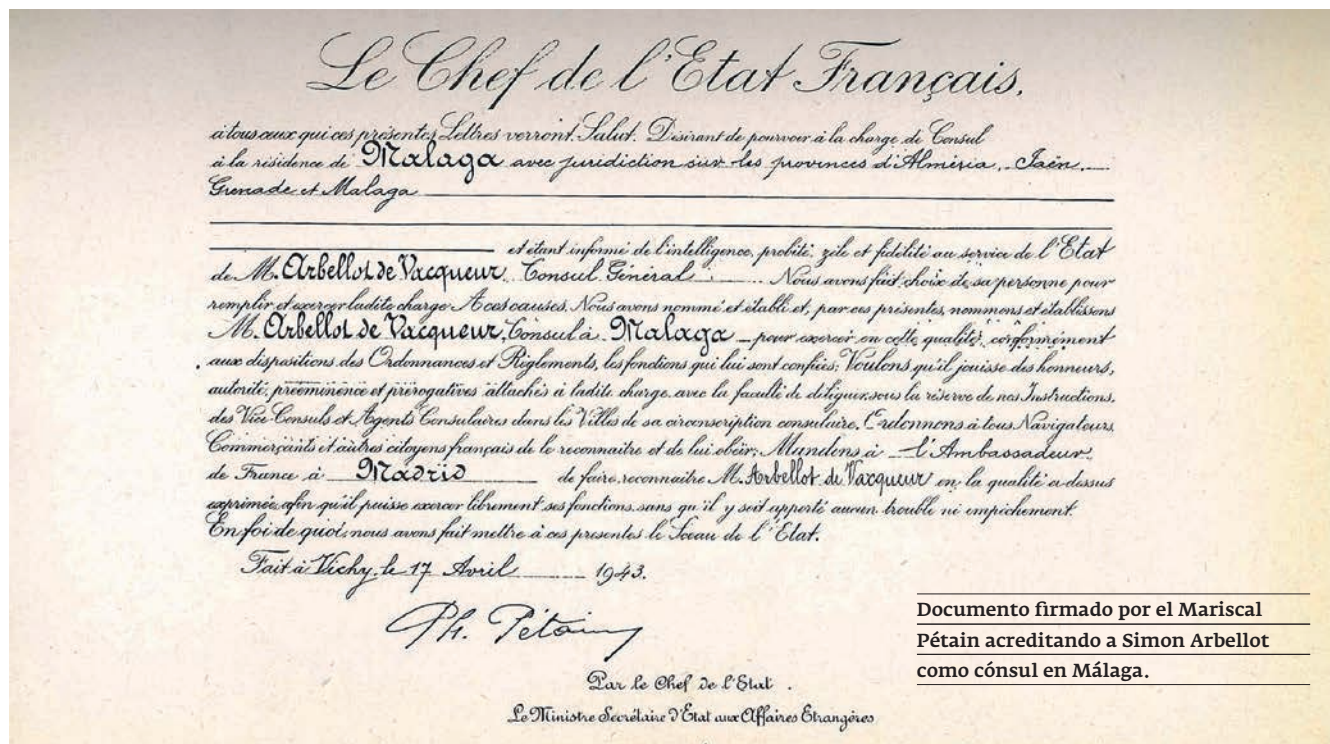 Le Chef de l'Etat Français.
à tous ceux qui ces présentes Lettres verront. Salut. Désirant de pourvoir à la charge de Consul
à la résidence de Malaga avec juridiction sur les provinces d'Alméria, Jaën,
Grenade et Malaga
et étant informé de l'intelligence, probité, zèle et fidélité au service de l'Etat
de M. Arbellot de Vacqueur, Consul Général Nous avons fait choix de sa personne pour
remplir et exercer ladite charge A ces causes, Nous avons nommé et établi et, par ces présentes, nommons et établissons
M. Arbellot de Vacqueur, Consul à Malaga pour exercer en cette qualité, conformément
aux dispositions des Ordonnances et Règlements, les fonctions qui lui sont confiées; Voulons qu'il jouisse des honneurs,
autorité, prééminence et prérogatives attachés à ladite charge, avec la faculté de déléguer, sous la réserve de nos Instructions,
des Vice-Consuls et Agents Consulaires dans les Villes de sa circonscription consulaire. Ordonnons à tous Navigateurs,
Commerçants et autres citoyens français de le reconnaître et de lui obéir; Mandons à l'Ambassadeur
de France à Madrid de faire reconnaitre M. Arbellot de Vacqueur en la qualité ci-dessus
exprimée, afin qu'il puisse exercer librement ses fonctions, sans qu'il y soit apporté aucun trouble ni empêchement.
En foi de quoi, nous avons fait mettre à ces présentes le Sceau de l'Etat.
Fait à Vichy, le 17 Avril 1943.
Ph. Pétain
Documento firmado por el Mariscal
Pétain acreditando a Simon Arbellot
como cónsul en Málaga.
Par le Chef de l'Etat.
Le Ministre Secrétaire d'Etat aux Affaires Etrangères